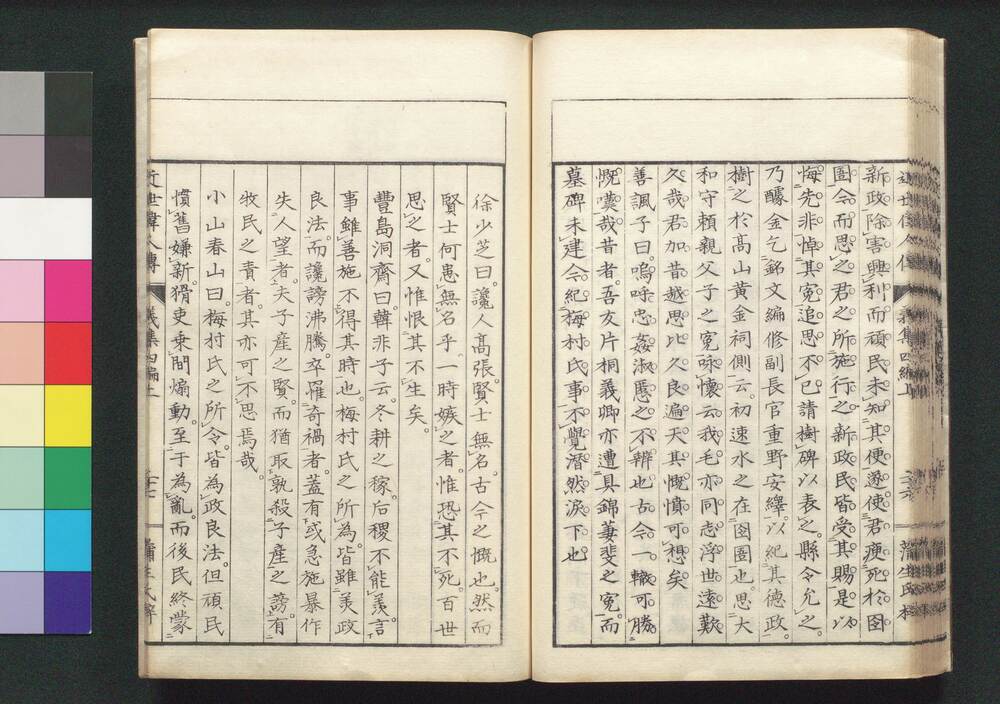 新政除害興利而頑民未知其便遂使君瘐死於囹
圄今而思之君之所施行之新政民皆受其賜是以
悔先非悼其冤追思不已請樹碑以表之縣令允之
乃醵金乞銘文編修副長官重野安繹以紀其德政
樹之於高山黄金祠側云初速水之在囹圄也思大
和守頼親父子之冤咏懷云我毛亦同志浮世遠歎
久哉君加昔越思比久良遍天其慨憤可想矣
善諷子曰嗚呼忠姦淑慝之不辨也古今一轍可勝
慨嘆哉昔者吾友片桐義卿亦遭具錦萋斐之冤而
墓碑未建今紀梅村氏事不覺潸然涙下也
徐少芝曰讒人高張賢士無名古今之慨也然而
賢士何患無名乎一時嫉之者惟恐其不死百世
思之者又惟恨其不生矣
豐島洞齋曰韓非子云冬耕之稼后稷不能羨言
事雖善施不得其時也梅村氏之所為皆雖美政
良法而讒謗沸騰卒罹奇禍者蓋有或急施暴作
失人望者夫子産之賢而猶取孰殺子産之謗有
牧民之責者其亦可不思焉哉
小山春山曰梅村氏之所令皆為政良法但頑民
慣舊嫌新猾吏乗間煽動至于為亂而後民終蒙
近世偉人傳 義集四編上
蒲生氏梓